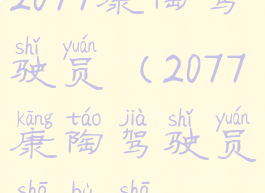 2077康陶驾
shǐ yuán
驶员（2077
kāng táo jià shǐ yuán
康陶驾驶员